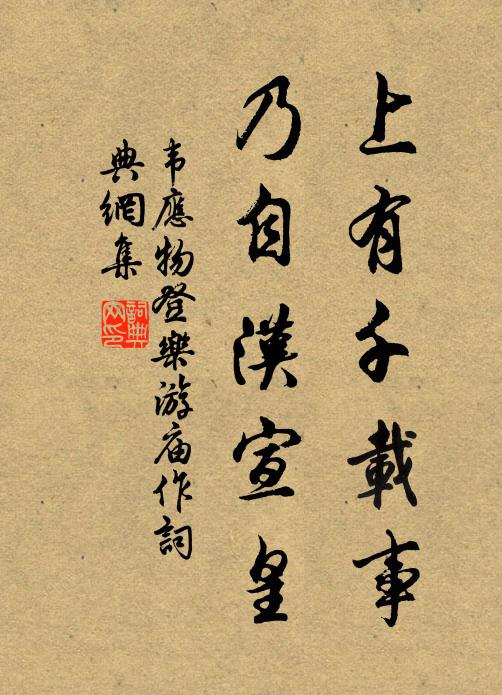 上有千載事
乃自漢宣皇
韦應物登樂游庙作詞
典網集
詞典
网印